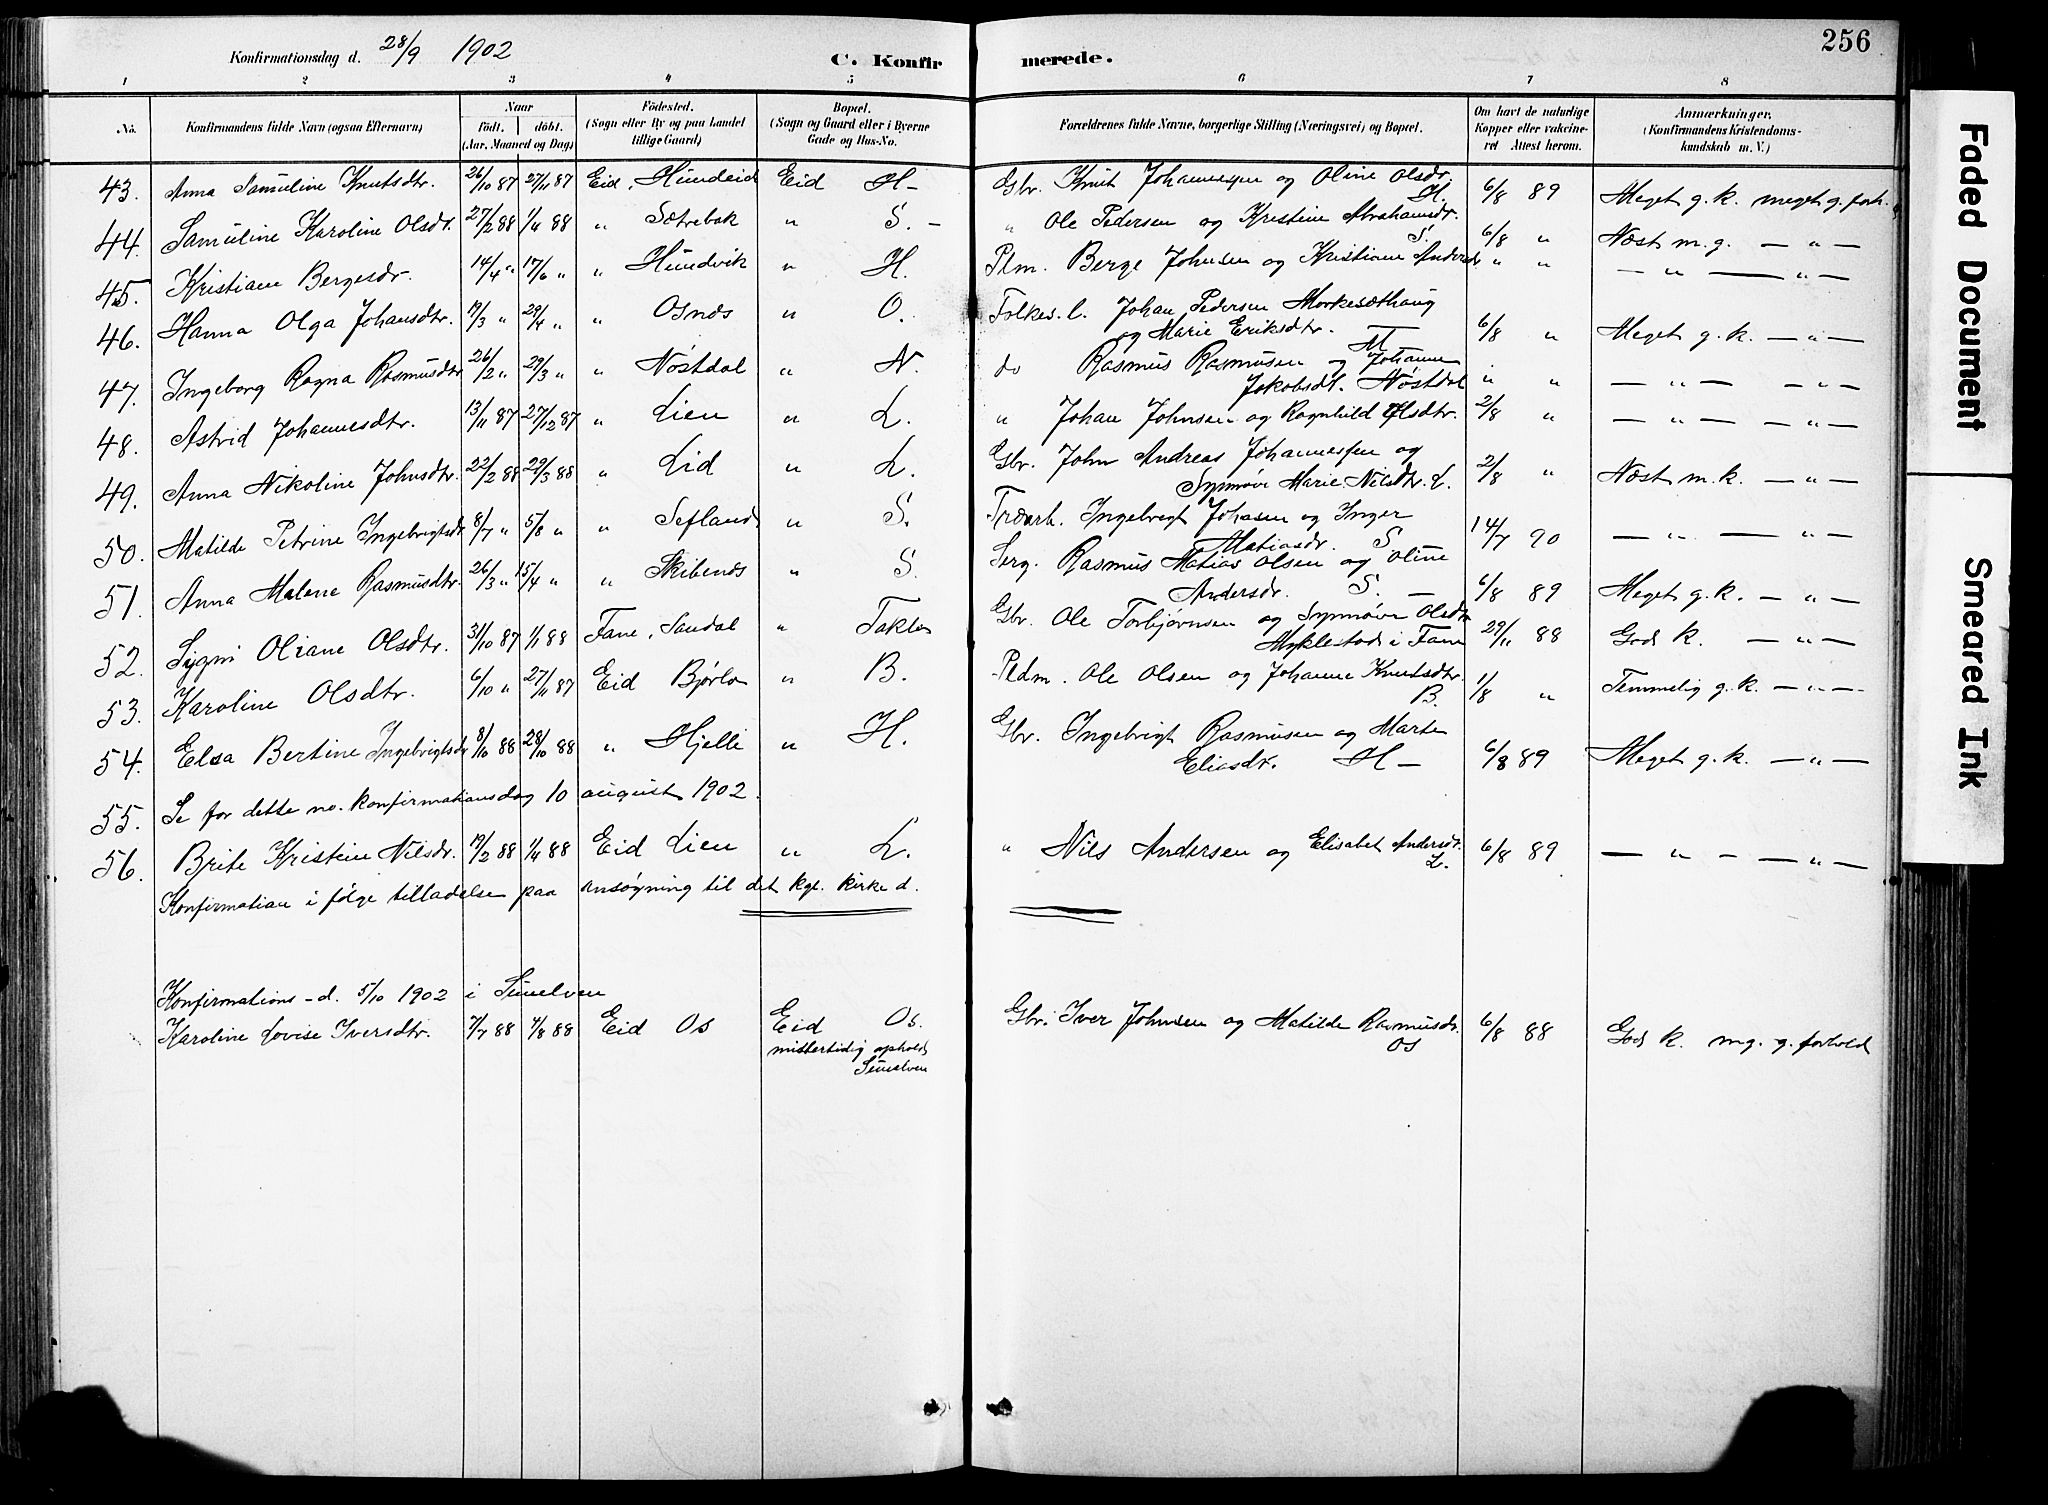 256
Konfirmationsdag d. 28/9 1902 C. Konfirmerede.
1 2 3 4 5 6 7 8
No. Konfirmandens fulde Navn (ogsaa Efternavn) Naar födt. döbt. (Aar, Maaned og Dag) Födested. (Sogn eller By og paa Landet tillige Gaard) Bopæl. (Sogn og Gaard eller i Byerne Gade og Hus-No. Forældrenes fulde Navne, borgerlige Stilling (Næringsvei) og Bopæl. Om havt de naturlige Kopper eller vakcineret Attest herom. Anmærkninger, (Konfirmandens Kristendomskundskab m. V.)
43. Anna Samuline Knutsdtr. 26/10 87 27/11 87 Eid, Hundeid Eid H- Gbr. Knut Johannessen og Oline Olsdr. H. 6/8 89 Meget g. k. meget g. forh.
44. Samuline Karoline Olsdr. 27/2 88 1/4 88 " Sætrebak " S. - " Ole Pedersen og Kristine Abrahamsdr. S. 6/8 " Næst m. g. — " —
45. Kristiane Bergesdr. 14/4 " 17/6 " " Hundvik " H. Plm. Berge Johnsen og Kristiane Andersdr " " — " — — " —
46. Hanna Olga Johansdtr. 19/3 " 29/4 " " Osnes " O. Folkes. l. Johan Pedersen Morkesæthaug
og Marie Eriksdtr. M 6/8 " Meget g. k. — " —
47. Ingeborg Ragna Rasmusdtr 26/2 " 29/3 " " Nøstdal " N. do Rasmus Rasmusen og Johanne
Jakobsdt. Nøstdal " " — " — — " —
48. Astrid Johannesdtr. 13/11 87 27/12 87 " Lien " L. " Johan Johnsen og Ragnhild Olsdtr. 2/8 " — " — — " —
49. Anna Nikoline Johnsdtr. 22/2 88 29/3 88 " Lid " L. Gbr. John Andreas Johannessen og
Synnøve Marie Nilsdtr. L. 2/8 " Næst m. k. — " —
50. Matilde Petrine Ingebrigtsdr 8/7 " 5/8 " " Sefland " S. Træarb. Ingebrigt Johasen og Inger
Matiasdr. S 14/7 90 — " — — " —
51. Anna Malene Rasmusdtr. 26/3 " 15/4 " " Skibenes " S. Serg. Rasmus Matias Olsen og Oline
Andersdr. S. — 6/8 89 Meget g. k. — " —
52. Sygni Oliane Olsdtr. 31/10 87 1/1 88 Fane, Sandal " Taklo Gbr. Ole Torbjørnsen og Synnøve Olsdtr
Myklestad i Fane 29/11 88 God k. — " —
53. Karoline Olsdtr. 6/10 " 27/11 87 Eid Bjørlo " B. Pldm. Ole Olsen og Johanne Knutsdtr
B. 1/8 " Temmelig g. k. — " —
54. Elsa Bertine Ingebrigtsdr 8/10 88 28/10 88 " Hjelle " H. Gbr. Ingebrigt Rasmusen og Marte
Eliasdr. H — 6/8 89 Meget g. k. — " —
55. Se for dette no. konfirmationsdag 10 august 1902.
56. Brite Kristine Nilsdr. 19/2 88 1/4 88 Eid Lien " L. " Nils Andersen og Elisabet Andersdr. L. 6/8 89 — " — — " —
Konfirmation i følge tilladelse paa ansøgning til det kgl. kirke d.
Konfirmations-d. 5/10 1902 i Sunelven
Karoline Lovise Iversdtr. 7/7 88 7/8 88 Eid Os Eid Os. Gbr. Iver Johnsen og Matilde Rasmusdr. Os 6/8 88 God k. mg. g. forhold
midlertidig ophold
Sunelven
Faded Document
Smeared Ink